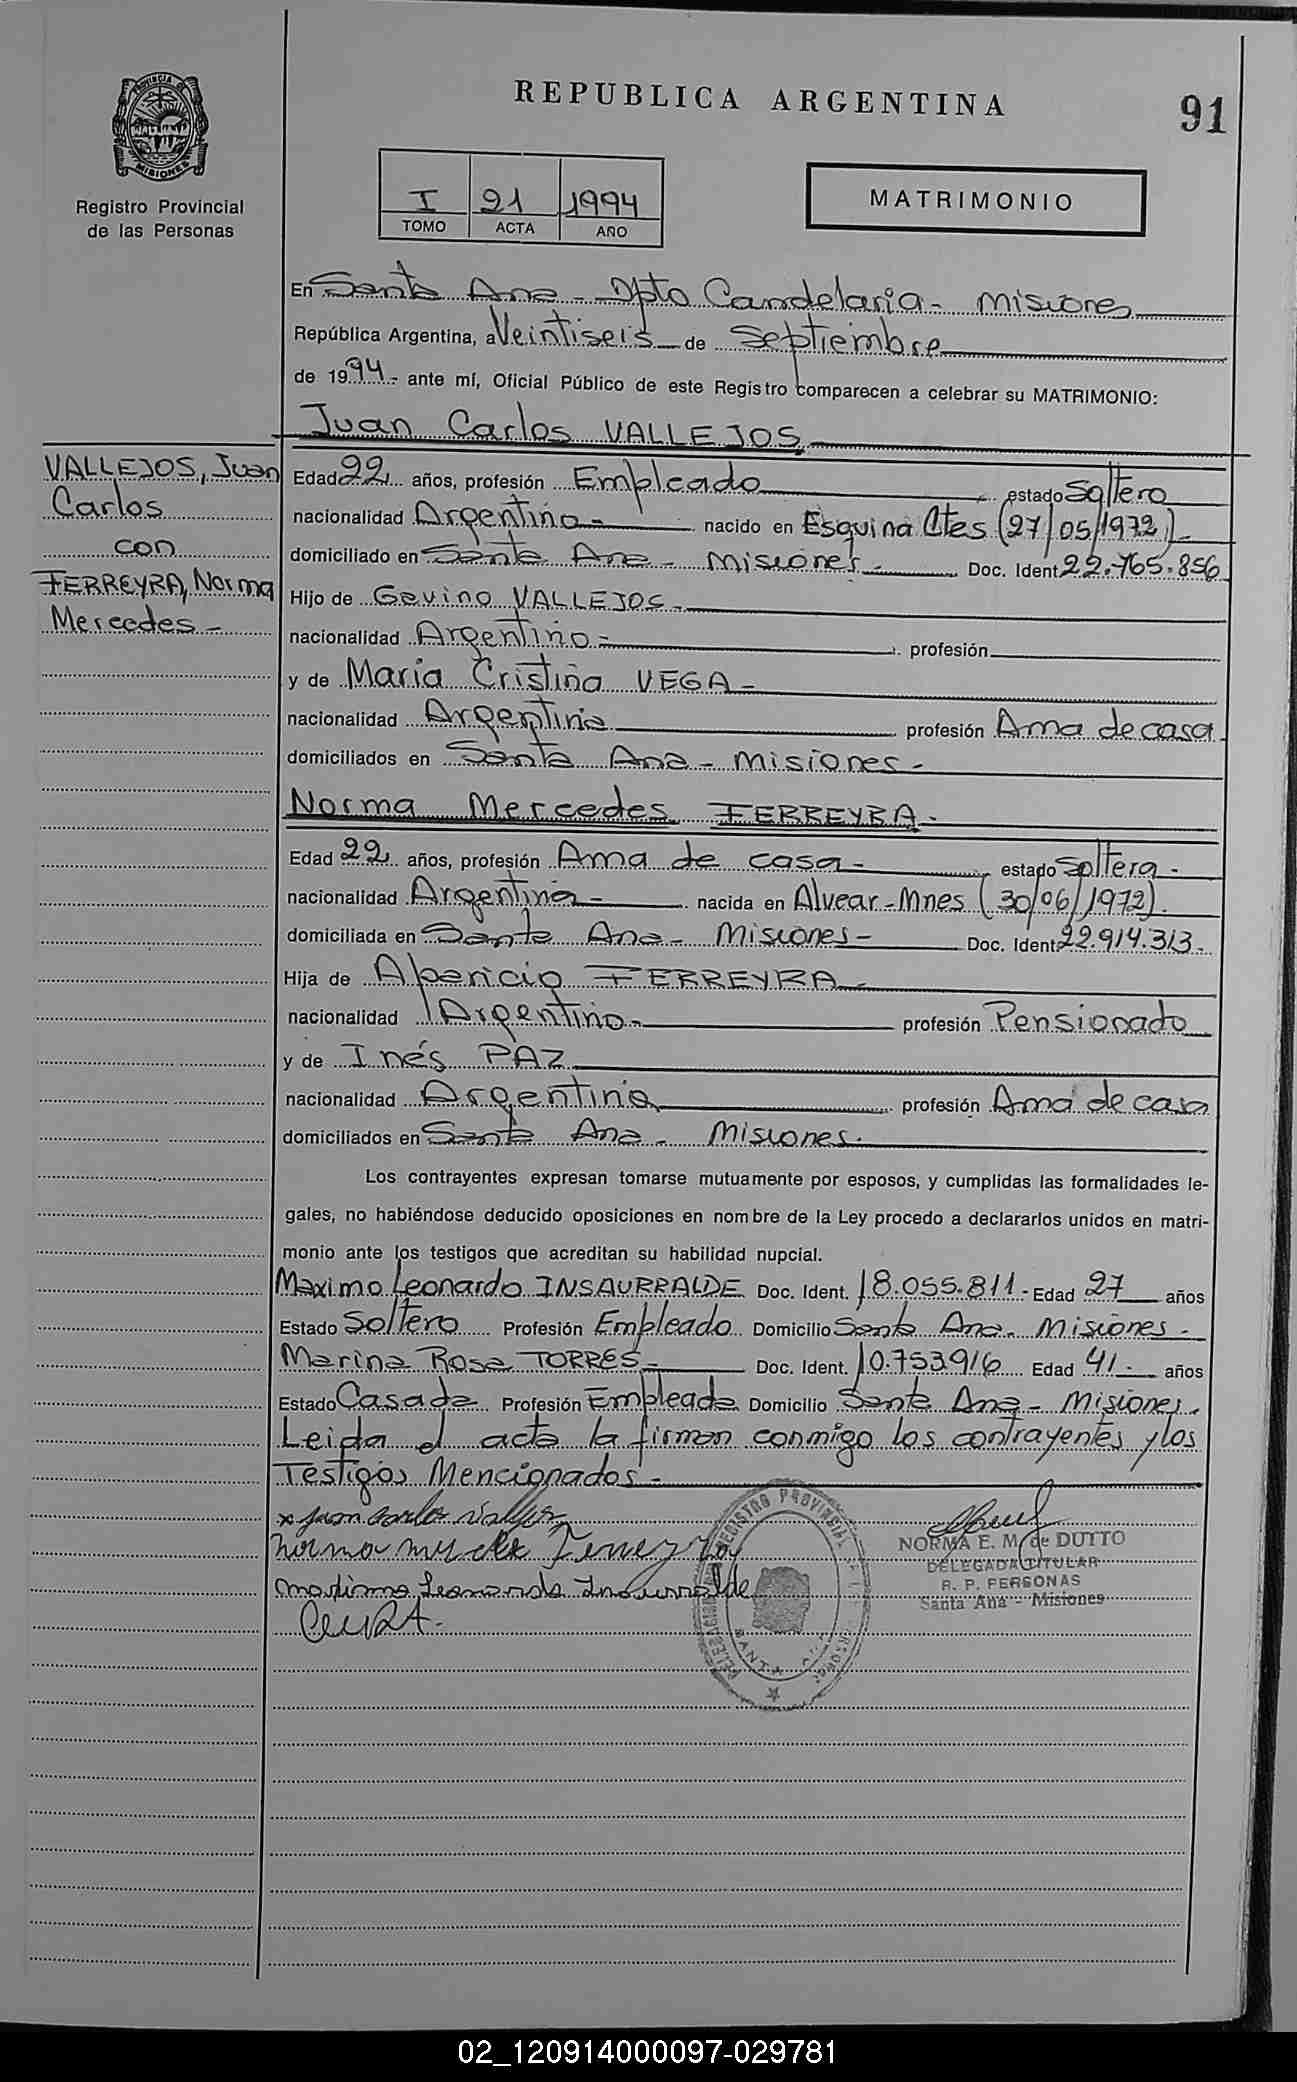 REPUBLICA ARGENTINA
91
PROVINCIA DE
MISIONES
Registro Provincial
de las Personas
I 91 1994
TOMO ACTA AÑO
MATRIMONIO
En Santa Ana - Dpto Candelaria - Misiones
República Argentina, a Veintiseis de Septiembre
de 1994.- ante mí, Oficial Público de este Registro comparecen a celebrar su MATRIMONIO:
Juan Carlos VALLEJOS
VALLEJOS, Juan
Carlos
con
FERREYRA, Norma
Mercedes -
Edad 22 años, profesión Empleado estado Soltero
nacionalidad Argentino - nacido en Esquina Ctes (27/05/1972)
domiciliado en Santa Ana - Misiones - Doc. Ident. 22.765.856
Hijo de Gavino VALLEJOS -
nacionalidad Argentino - profesión
y de Maria Cristina VEGA -
nacionalidad Argentina profesión Ama de casa
domiciliados en Santa Ana - Misiones -
Norma Mercedes FERREYRA -
Edad 22 años, profesión Ama de casa - estado Soltera -
nacionalidad Argentina - nacida en Alvear - Mnes (30/06/1972).
domiciliada en Santa Ana - Misiones - Doc. Ident. 22.914.313.
Hija de Aparicio FERREYRA -
nacionalidad Argentino - profesión Pensionado
y de Inés PAZ
nacionalidad Argentina profesión Ama de casa
domiciliados en Santa Ana - Misiones.
Los contrayentes expresan tomarse mutuamente por esposos, y cumplidas las formalidades le-
gales, no habiéndose deducido oposiciones en nombre de la Ley procedo a declararlos unidos en matri-
monio ante los testigos que acreditan su habilidad nupcial.
Maximo Leonardo INSAURRALDE Doc. Ident. 18.055.811 - Edad 27 años
Estado Soltero Profesión Empleado Domicilio Santa Ana - Misiones -
Marina Rosa TORRES - Doc. Ident. 10.753.916 Edad 41 - años
Estado Casada Profesión Empleada Domicilio Santa Ana - Misiones.
Leida el acta la firman conmigo los contrayentes y los
Testigos Mencionados -
x Juan Carlos Vallejos
Norma Ferreyra
Maximo Leonardo Insaurralde
NORMA E. M. de DUTTO
DELEGADA TITULAR
R. P. PERSONAS
Santa Ana - Misiones
REGISTRO PROVINCIAL
DELEGACION
SANTA ANA
02_120914000097-029781